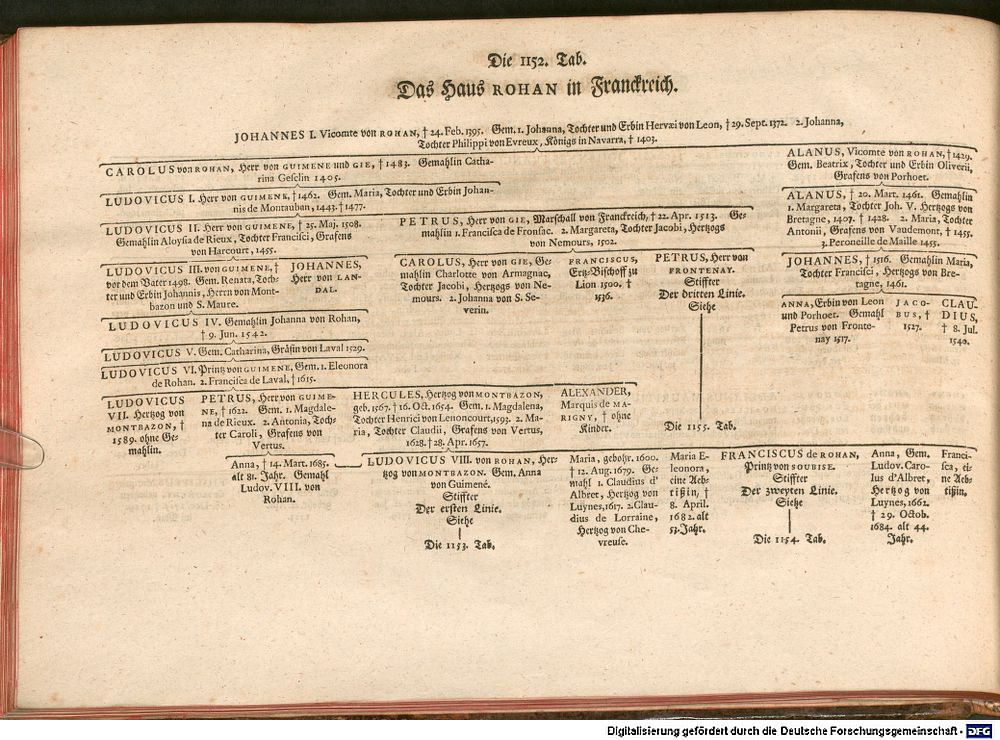 Die 1152. Tab.
Das Haus ROHAN in Franckreich.
JOHANNES I. Vicomte von ROHAN, † 24. Feb. 1395. Gem. 1. Johanna, Tochter und Erbin Hervæi von Leon, † 29. Sept. 1372. 2. Johanna,
Tochter Philippi von Evreux, Königs in Navarra, † 1403.
CAROLUS von ROHAN, Herr von GUIMENE und GIE, † 1483. Gemahlin Catha-
rina Gesclin 1405.
ALANUS, Vicomte von ROHAN, † 1429.
Gem. Beatrix, Tochter und Erbin Oliverii,
Grafens von Porhoet.
LUDOVICUS I. Herr von GUIMENE, † 1462. Gem. Maria, Tochter und Erbin Johan-
nis de Montauban, 1443. † 1477.
ALANUS, † 20. Mart. 1461. Gemahlin
1. Margareta, Tochter Joh. V. Hertzogs von
Bretagne, 1407. † 1428. 2. Maria, Tochter
Antonii, Grafens von Vaudemont, † 1455.
3. Peroneille de Maille 1455.
LUDOVICUS II. Herr von GUIMENE, † 25. Maj. 1508.
Gemahlin Aloysia de Rieux, Tochter Francisci, Grafens
von Harcourt, 1455.
PETRUS, Herr von GIE, Marschall von Franckreich, † 22. Apr. 1513. Ge-
mahlin 1. Francisca de Fronsac. 2. Margareta, Tochter Jacobi, Hertzogs
von Nemours, 1502.
LUDOVICUS III. von GUIMENE, †
vor dem Vater 1498. Gem. Renata, Toch-
ter und Erbin Johannis, Herrn von Mont-
bazon und S. Maure.
JOHANNES,
Herr von LAN-
DAL.
CAROLUS, Herr von GIE, Ge-
mahlin Charlotte von Armagnac,
Tochter Jacobi, Hertzogs von Ne-
mours. 2. Johanna von S. Se-
verin.
FRANCISCUS,
Ertz-Bischoff zu
Lion 1500. †
1536.
PETRUS, Herr von
FRONTENAY.
Stiffter
Der dritten Linie.
Siehe
Die 1155. Tab.
JOHANNES, † 1516. Gemahlin Maria,
Tochter Francisci, Hertzogs von Bre-
tagne, 1461.
ANNA, Erbin von Leon
und Porhoet. Gemahl
Petrus von Fronte-
nay 1517.
JACO-
BUS, †
1527.
CLAU-
DIUS,
† 8. Jul.
1540.
LUDOVICUS IV. Gemahlin Johanna von Rohan,
† 9. Jun. 1542.
LUDOVICUS V. Gem. Catharina, Gräfin von Laval 1529.
LUDOVICUS VI. Printz von GUIMENE, Gem. 1. Eleonora
de Rohan. 2. Francisca de Laval, † 1615.
LUDOVICUS
VII. Hertzog von
MONTBAZON, †
1589. ohne Ge-
mahlin.
PETRUS, Herr von GUIME-
NE, † 1622. Gem. 1. Magdale-
na de Rieux. 2. Antonia, Toch-
ter Caroli, Grafens von
Vertus.
HERCULES, Hertzog von MONTBAZON,
geb. 1567. † 16. Oct. 1654. Gem. 1. Magdalena,
Tochter Henrici von Lenoncourt, 1593. 2. Ma-
ria, Tochter Claudii, Grafens von Vertus,
1628. † 28. Apr. 1657.
ALEXANDER,
Marquis de MA-
RIGNY, † ohne
Kinder.
Anna, † 14. Mart. 1685.
alt 81. Jahr. Gemahl
Ludov. VIII. von
Rohan.
LUDOVICUS VIII. von ROHAN, Her-
tzog von MONTBAZON. Gem. Anna
von Guimené.
Stiffter
Der ersten Linie.
Siehe
Die 1153. Tab.
Maria, gebohr. 1600.
† 12. Aug. 1679. Ge-
mahl 1. Claudius d'
Albret, Hertzog von
Luynes, 1617. 2. Clau-
dius de Lorraine,
Hertzog von Che-
vreuse.
Maria E-
leonora,
eine Aeb-
tißin, †
8. April.
1682. alt
53. Jahr.
FRANCISCUS de ROHAN,
Printz von SOUBISE.
Stiffter
Der zweyten Linie.
Siehe
Die 1154. Tab.
Anna, Gem.
Ludov. Caro-
lus d'Albret,
Hertzog von
Luynes, 1662.
† 29. Octob.
1684. alt 44.
Jahr.
Franci-
sca, ei-
ne Aeb-
tißin.
Digitalisierung gefördert durch die Deutsche Forschungsgemeinschaft - DFG